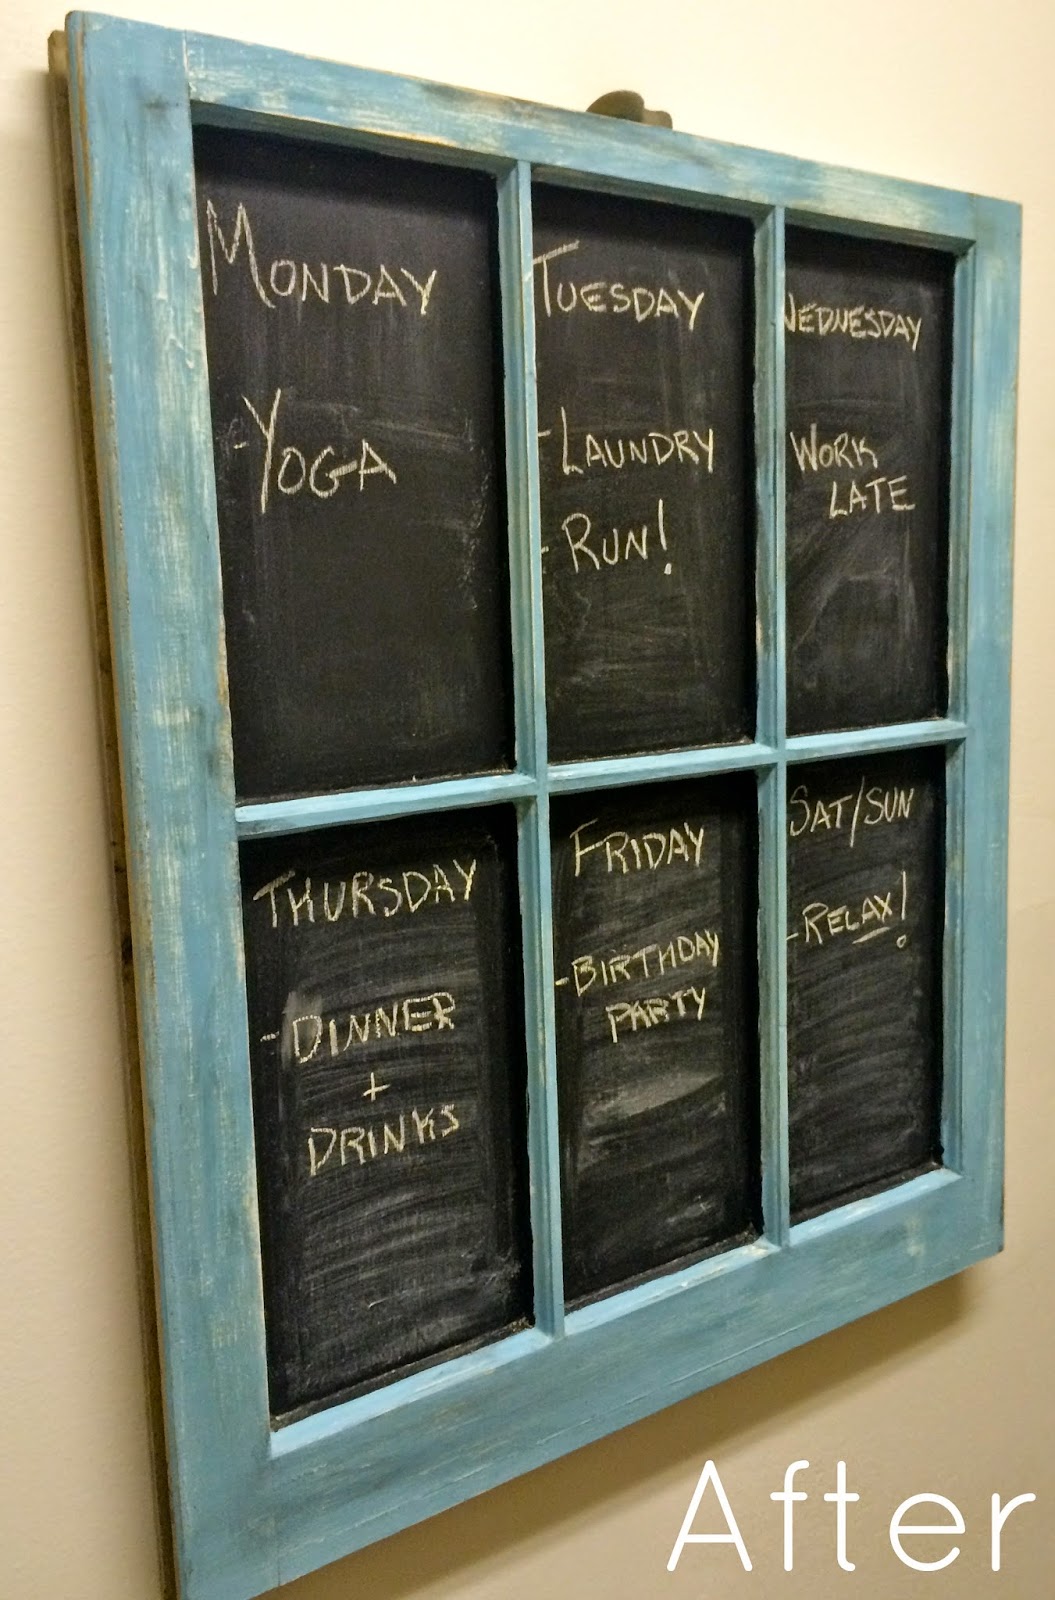 MONDAY
-YOGA
TUESDAY
-LAUNDRY
-RUN!
WEDNESDAY
WORK
LATE
THURSDAY
-DINNER
+
DRINKS
FRIDAY
-BIRTHDAY
PARTY
SAT/SUN
-RELAX!
After